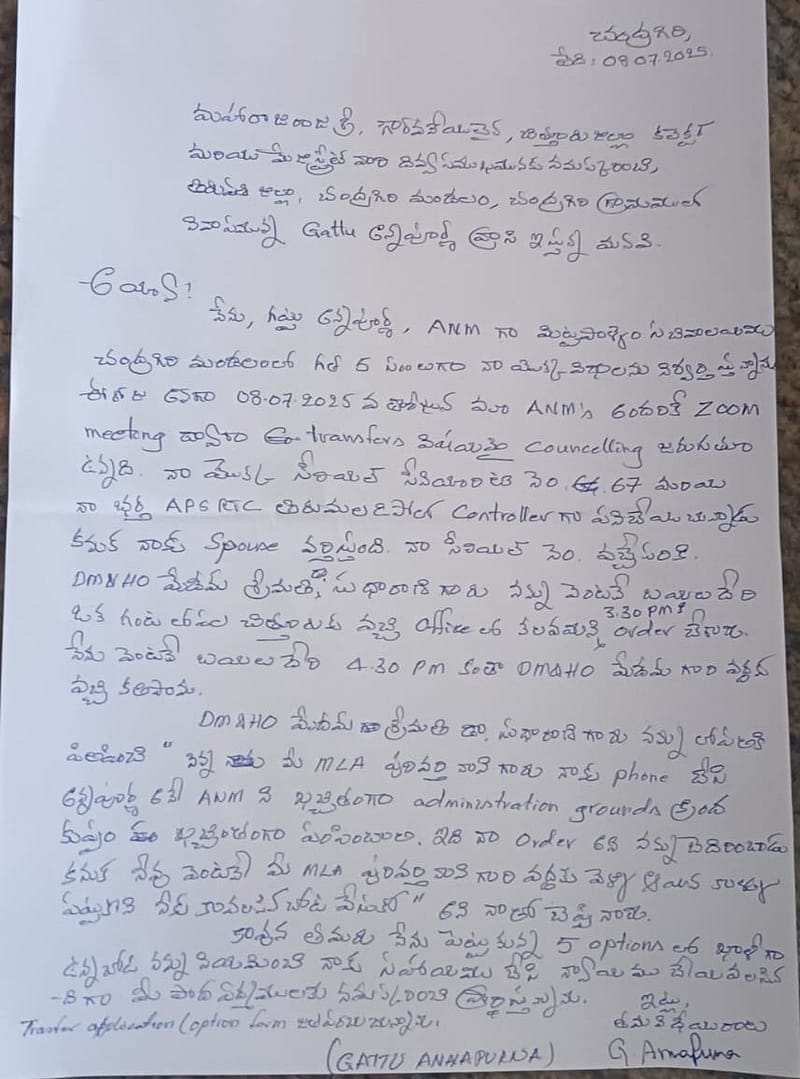 చంద్రగిరి,
తేది: 08.07.2025.
మహారాజరాజశ్రీ, గౌరవనీయులైన, చిత్తూరు జిల్లా కలెక్టర్
మరియు మేజిస్ట్రేట్ వారి దివ్య సముఖమునకు నమస్కరించి,
తిరుపతి జిల్లా, చంద్రగిరి మండలం, చంద్రగిరి గ్రామములో
నివాసమున్న Gattu అన్నపూర్ణ వ్రాసి ఇస్తున్న మనవి.
అయ్యా!
నేను, గట్టు అన్నపూర్ణ, ANM గా మిట్టపాళ్యం సచివాలయము
చంద్రగిరి మండలంలో గత 5 సం॥లుగా నా యొక్క విధులను నిర్వర్తిస్తున్నాను
ఈ రోజు అనగా 08.07.2025 వ తారీఖున మా ANM's అందరికీ ZOOM
meeting ద్వారా transfers విషయమై Councelling జరుగుతూ
ఉన్నది. నా యొక్క సీరియల్ సీనియారిటీ నెం. 67 మరియు
నా భర్త APSRTC తిరుమల డిపోలో Controller గా పనిచేయుచున్నాడు
కనుక నాకు Spouse వర్తిస్తుంది. నా సీరియల్ నెం. వచ్చేసరికి.
DM&HO మేడమ్ శ్రీమతి డా, సుధారాణి గారు నన్ను వెంటనే బయలుదేరి
ఒక గంట లోపల చిత్తూరుకు వచ్చి Office లో కలవమని 3.30 pm కి order చేశారు.
నేను వెంటనే బయలుదేరి 4.30 pm కంతా DM&HO మేడమ్ గారి వద్దకు
వచ్చి కలిశాను.
DM&HO మేడమ్ శ్రీమతి డా. సుధారాణి గారు నన్ను లోపలికి
పిలిపించి " నిన్న మీ MLA పులివర్తి నాని గారు నాకు phone చేసి
అన్నపూర్ణ అనే ANM ని ఖచ్చితంగా administration grounds క్రింద
కుప్పం ఖచ్చితంగా పంపించాలి. ఇది నా Order అని నన్ను బెదిరించాడు
కనుక నీవు వెంటనే మీ MLA పులివర్తి నాని గారి వద్దకు వెళ్ళి ఆయన కాళ్ళు
పట్టుకొని నీకు కావలసినచోట వేసుకో" అని నాతో చెప్పినారు.
కావున తమరు నేను పెట్టుకున్న 5 options లో ఖాళీగా
ఉన్నచోట నన్ను నియమించి నాకు సహాయము చేసి న్యాయము చేయవలసిన
-దిగా మీ పాదపద్మములకు నమస్కరించి ప్రార్థిస్తున్నాను.
ఇట్లు,
Tranfer application/option form జతపరుచుచున్నాను.
తమ విధేయురాలు
(GATTU ANNAPURNA)
G. Annapurna